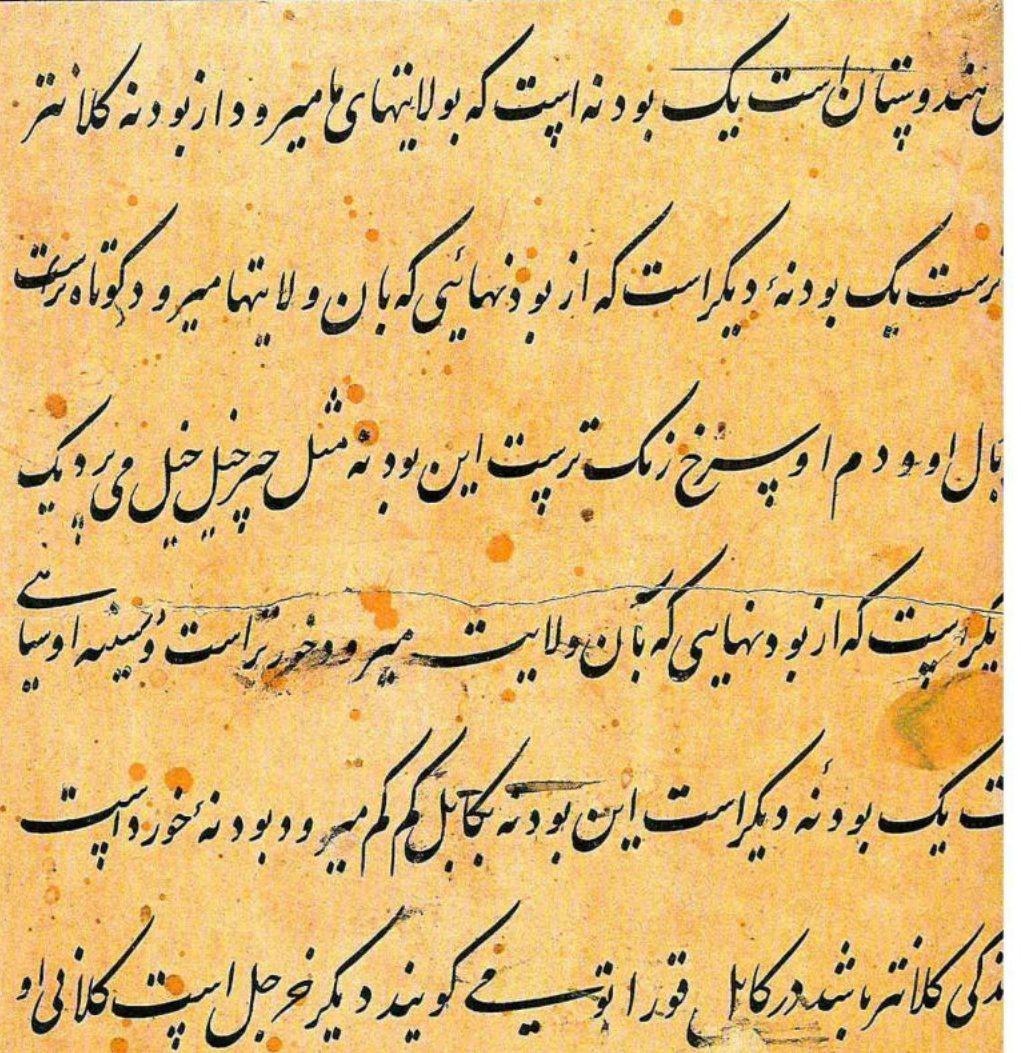 هندوستان است یک بودنه است که بولایتهای ما میرود از بودنه کلانتر
ترست یک بودنهٔ دیکر است که از بودنهائیی که بان ولایتها میرود کوتاه ترست
بال او و دم او سرخ رنک ترست این بودنه مثل خیل خیل می پرد یک
دیکر است که از بودنهایی که بان ولایت میرود خورد تر است و سینه او سیاهی
یک بودنه دیکر است این بودنه بکابل کم کم میرود بودنهٔ خورد است
کلانتر باشد در کابل قوراتو می کویند دیکر خرجل است کلانی او